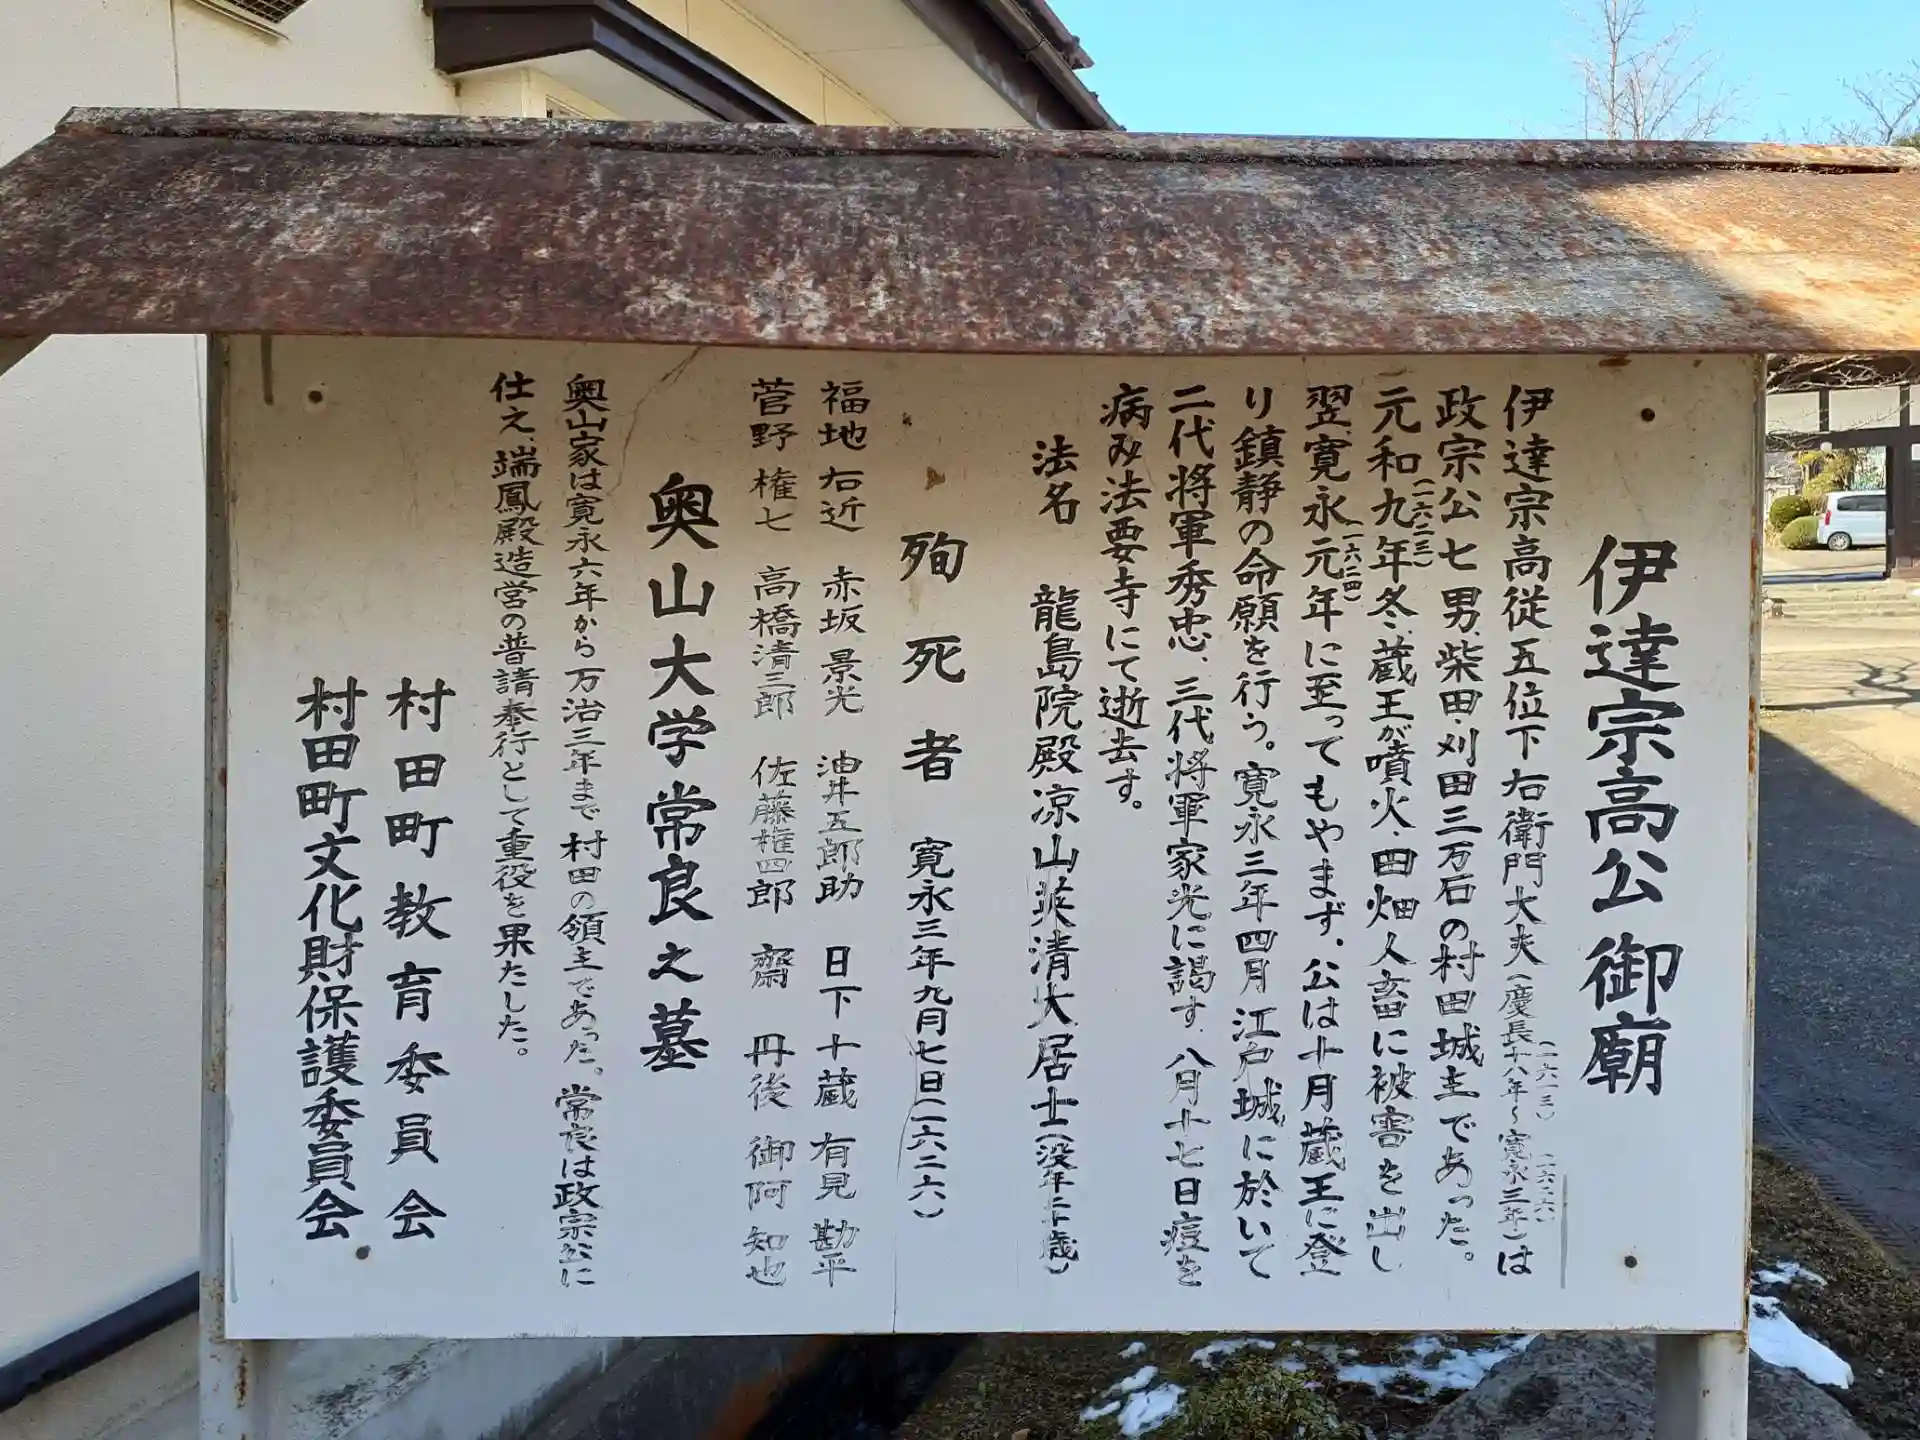 伊達宗高公御廟
伊達宗高従五位下右衛門大夫(慶長十八年(一六一三)～寛永三年(一六二六))は
政宗公七男、柴田・刈田三万石の村田城主であった。
元和九年(一六二三)冬、蔵王が噴火・田畑人畜に被害を出し
翌、寛永元年(一六二四)に至ってもやまず、公は十月蔵王に登
り鎮静の命願を行う。寛永三年四月江戸城に於いて
二代将軍秀忠、三代将軍家光に謁す、八月十七日痘を
病み法要寺にて逝去す。
法名 龍島院殿凉山英清大居士(没年二十歳)
殉死者 寛永三年九月七日(一六二六)
福地右近 赤坂景光 油井五郎助 日下十蔵 有見勘平
菅野権七 高橋清三郎 佐藤権四郎 齋丹後 御阿知也
奥山大学常良之墓
奥山家は寛永六年から万治三年まで村田の領主であった。常良は政宗公に
仕え、端鳳殿造営の普請奉行として重役を果たした。
村田町教育委員会
村田町文化財保護委員会